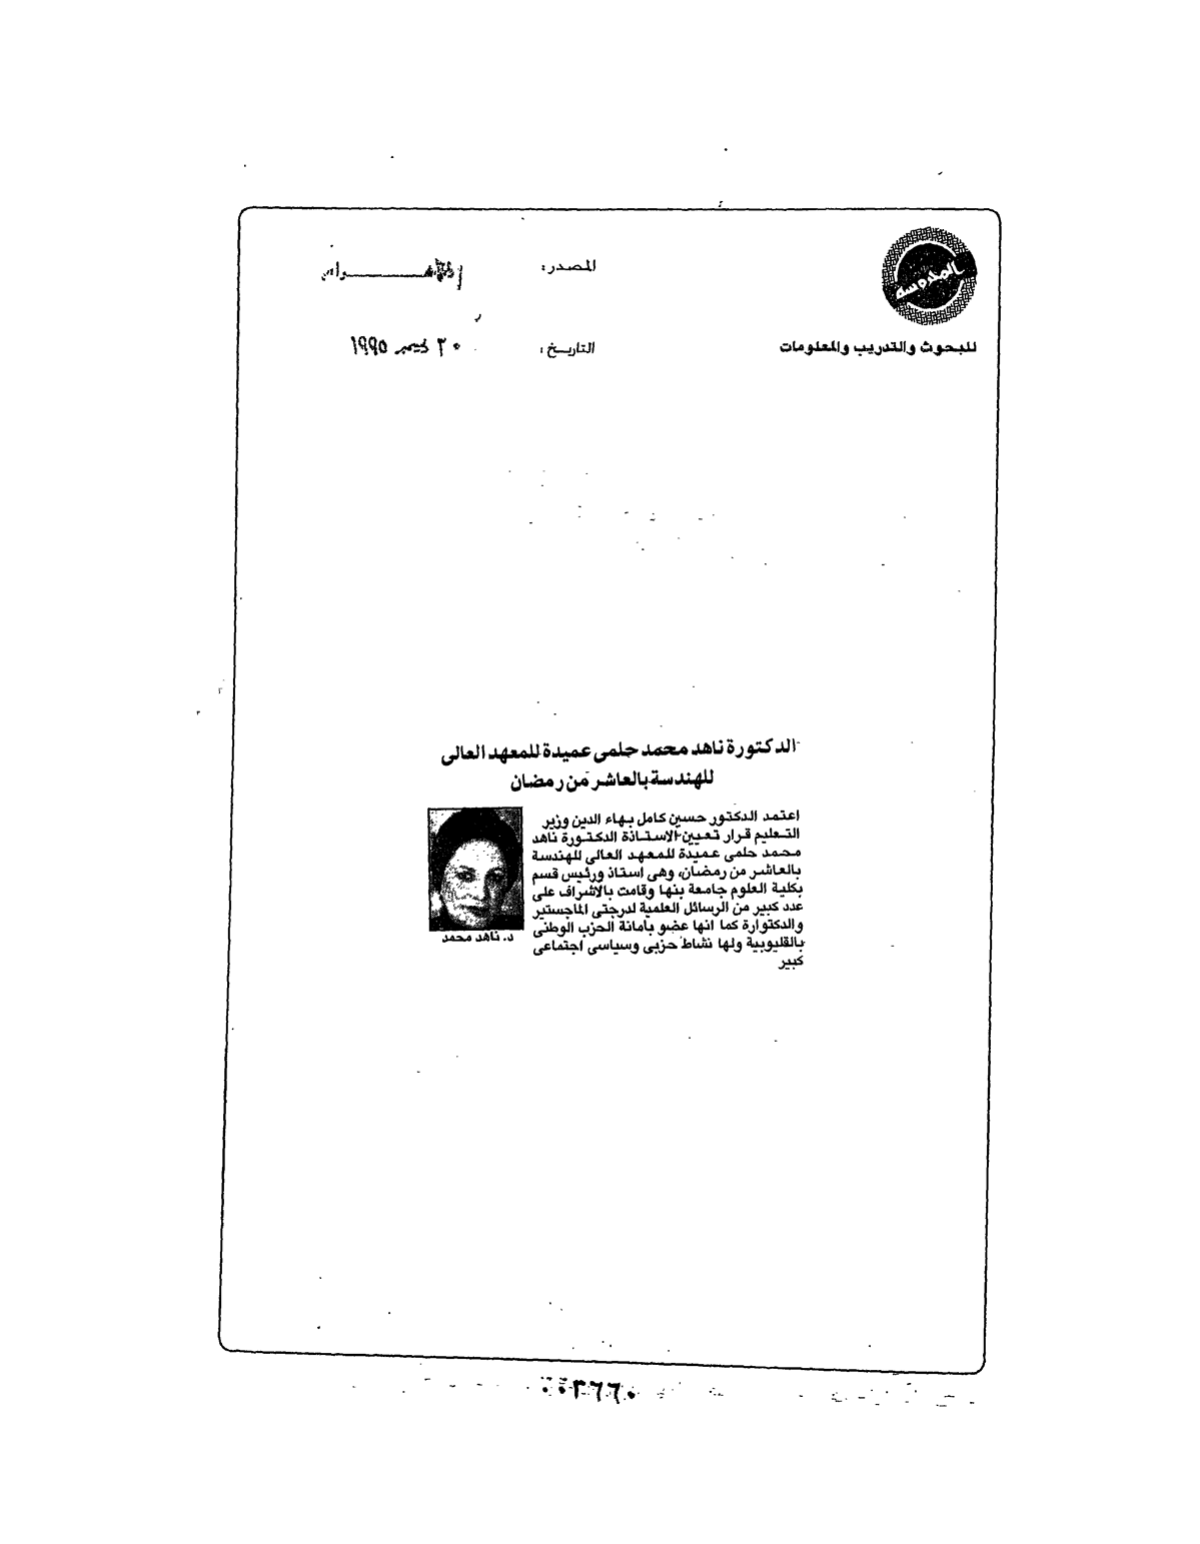 المدوسة
للبحوث والتدريب والمعلومات
المصدر:
التاريخ:
٢٠ ديسمبر ١٩٩٥
الدكتورة ناهد محمد حلمى عميدة للمعهد العالى
للهندسة بالعاشر من رمضان
اعتمد الدكتور حسين كامل بهاء الدين وزير
التعليم قرار تعيين الاستاذة الدكتورة ناهد
محمد حلمى عميدة للمعهد العالى للهندسة
بالعاشر من رمضان، وهى استاذ ورئيس قسم
بكلية العلوم جامعة بنها وقامت بالاشراف على
عدد كبير من الرسائل العلمية لدرجتى الماجستير
والدكتوارة كما انها عضو بأمانة الحزب الوطنى
بالقليوبية ولها نشاط حزبى وسياسى اجتماعى
كبير
د. ناهد محمد
٠٠٣٦٦٠